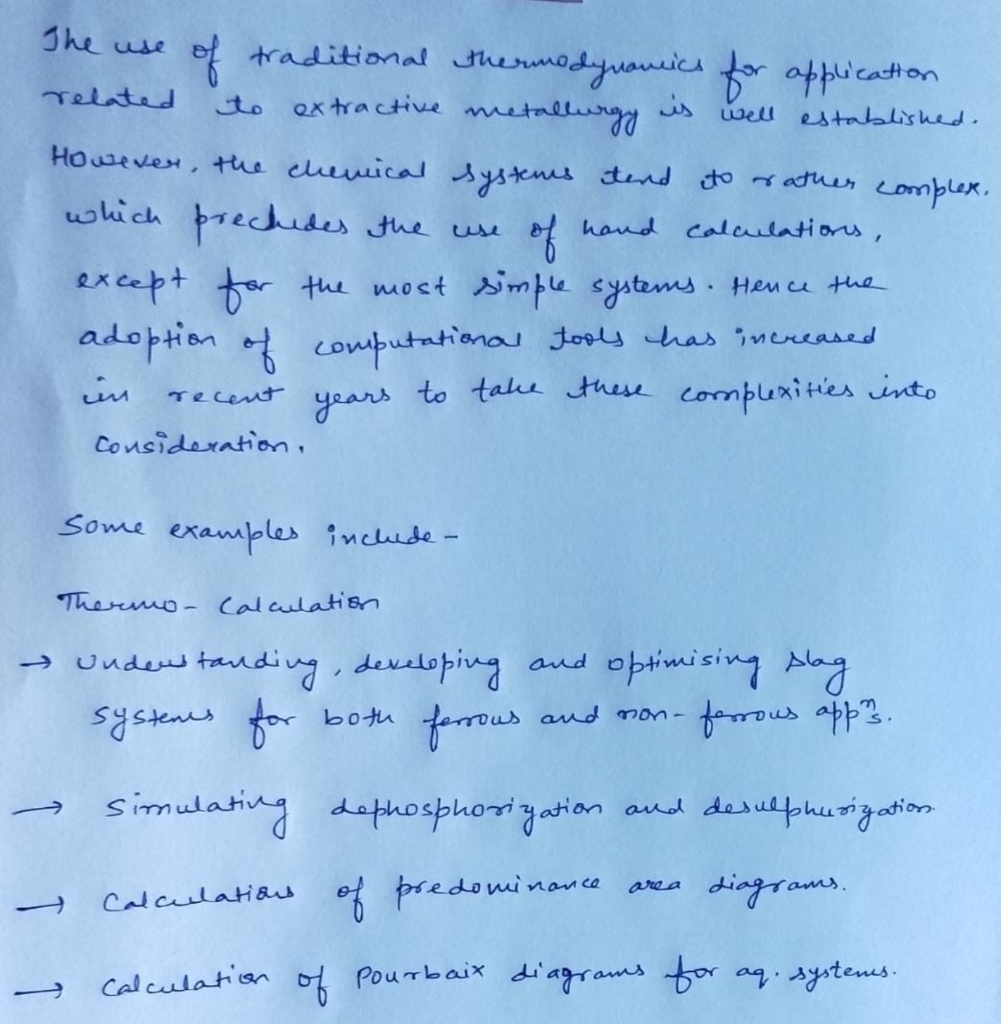 The use of traditional thermodynamics for application
related to extractive metallurgy is well established.
However, the chemical systems tend to rather complex.
which precludes the use of hand calculations,
except for the most simple systems. Hence the
adoption of computational tools has increased
in recent years to take these complexities into
consideration.
Some examples include -
Thermo - Calculation
→ Understanding, developing and optimising slag
systems for both ferrous and non - ferrous appⁿs.
→ Simulating dephosphorization and desulphurization
→ Calculations of predominance area diagrams.
→ Calculation of Pourbaix diagrams for aq. systems.